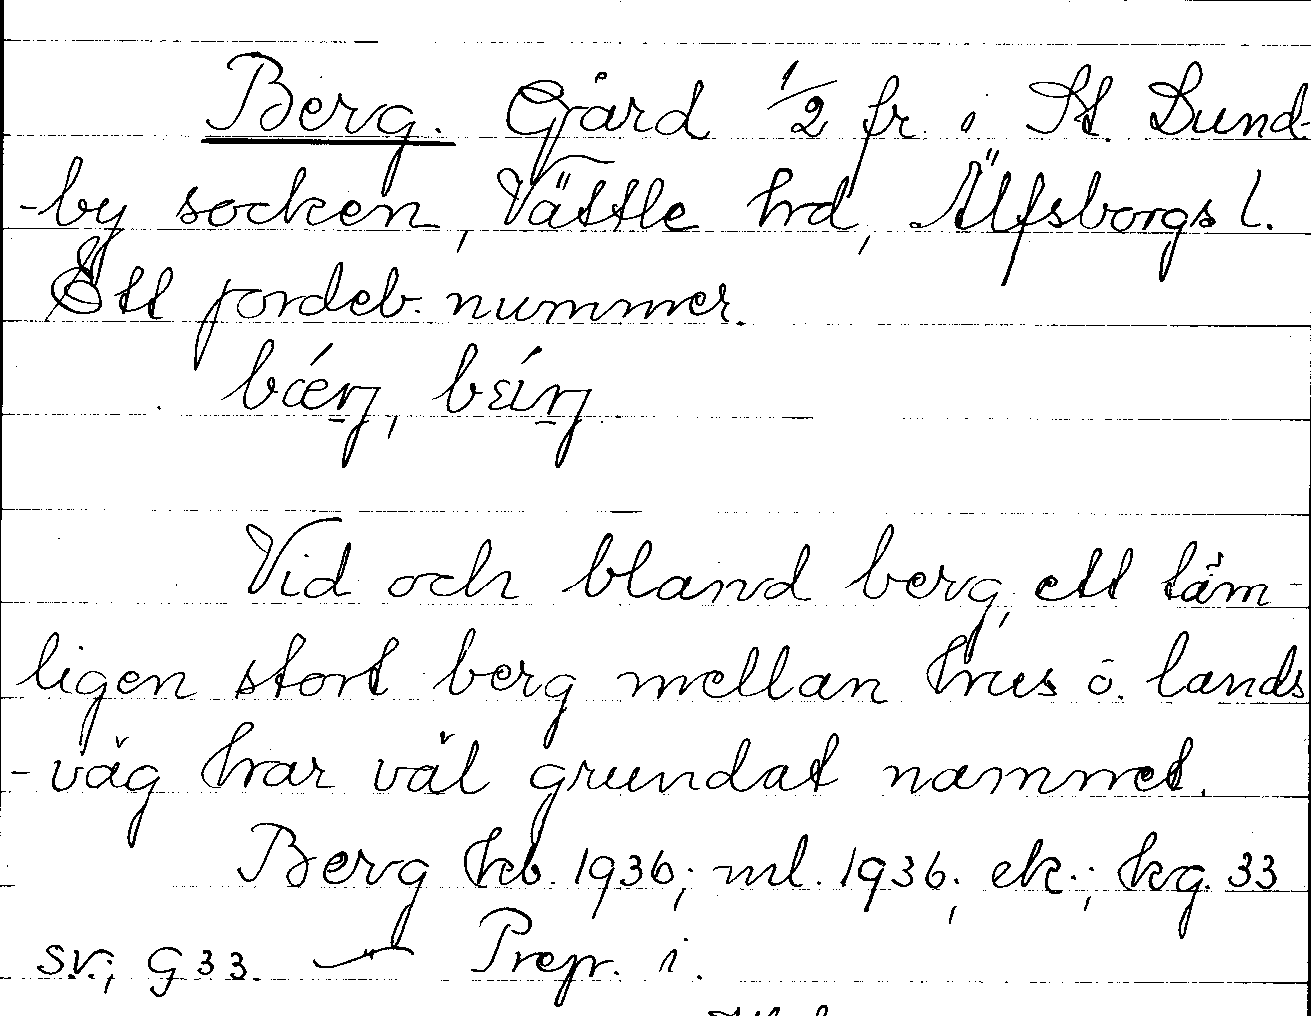 Berg. Gård 1/2 fr. i St. Lund-
-by socken, Vättle hrd, Älfsborgs l.
Ett jordeb. nummer.

Vid och bland berg, ett täm-
ligen stort berg mellan hus o. lands
-väg har väl grundat namnet.
Berg hb. 1936; ml. 1936; ek.; kg. 33
sv.; G 33. — Prep. i.